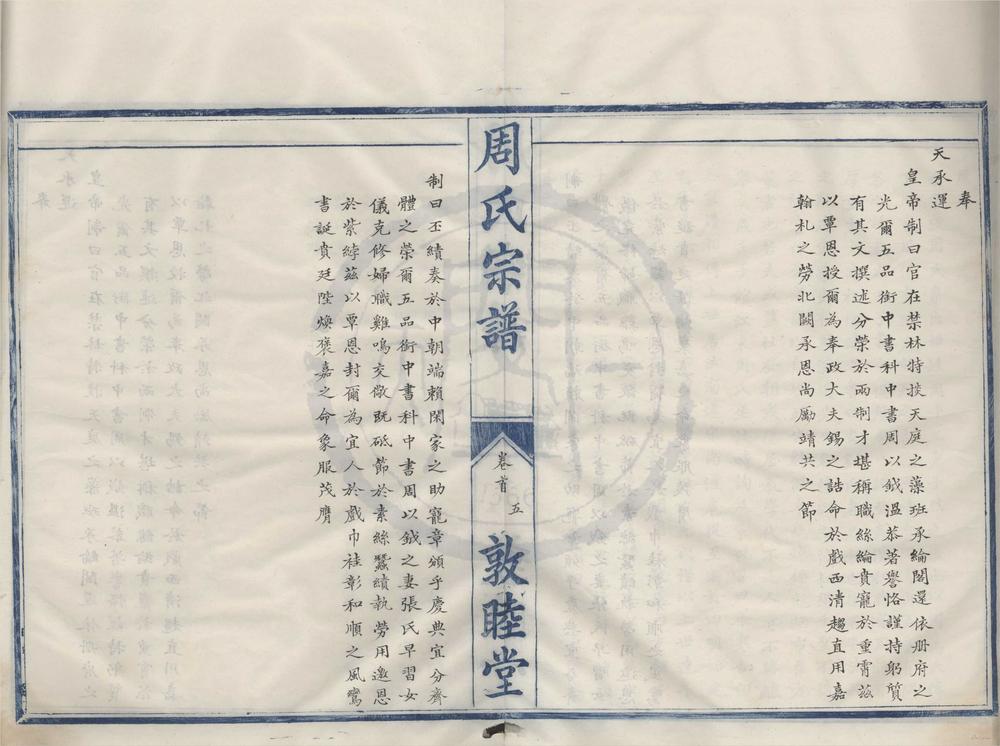 奉
天承運
皇帝制曰官在禁林特掞天庭之藻班承綸閣還依册府之
光爾五品銜中書科中書周以鉞溫恭著譽恪謹持躬質
有其文撰述分榮於兩制才堪稱職絲綸賁寵於重霄茲
以覃恩授爾為奉政大夫錫之誥命於戲西清趨直用嘉
翰札之勞北闕承恩尚勵靖共之節
周氏宗譜
卷首
五
敦睦堂
制曰丕績奏於中朝端賴閑家之助寵章頒乎慶典宜分齊
體之榮爾五品銜中書科中書周以鉞之妻張氏早習女
儀克修婦職雞鳴交儆既砥節於素絲蠶績執勞用邀恩
於紫綍茲以覃恩封爾為宜人於戲巾袿彰和順之風鸞
書誕賁廷陛煥褒嘉之命象服茂膺